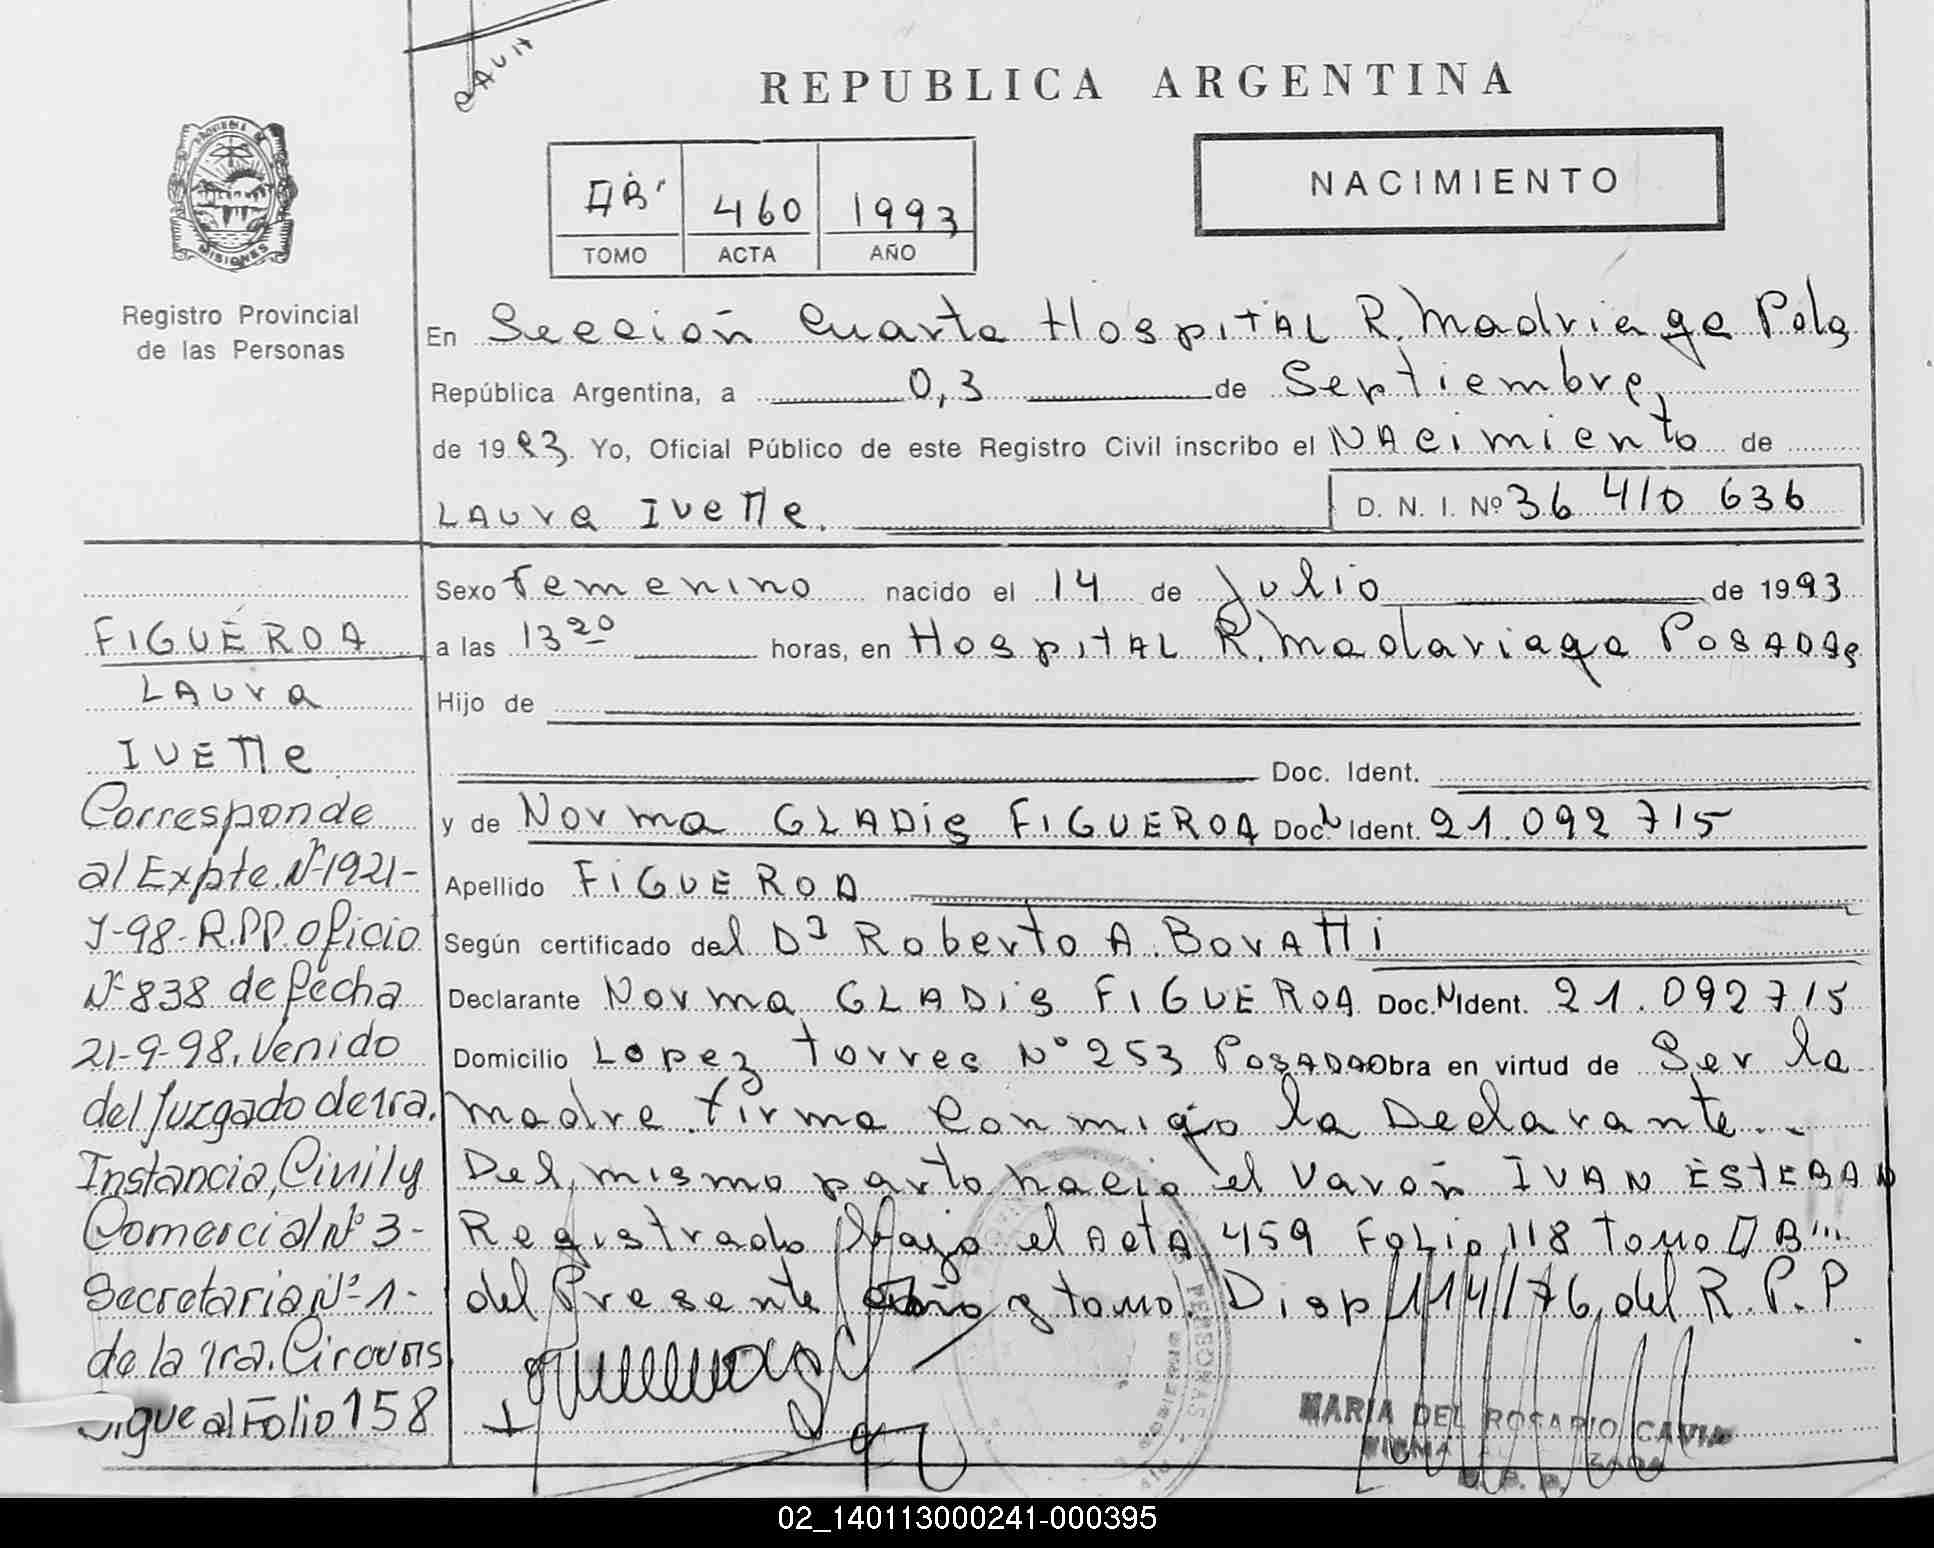 REPUBLICA ARGENTINA
460 1993
TOMO ACTA AÑO
NACIMIENTO
MISIONES
Registro Provincial
de las Personas
En Sección Cuarta Hospital R. Madriaga Pdas
República Argentina, a 03 de Septiembre
de 1993 Yo, Oficial Público de este Registro Civil inscribo el Nacimiento de
Laura Ivette. D. N. I. Nº 36 410 636
Sexo Femenino nacido el 14 de Julio de 1993
a las 13 20 horas, en Hospital R. Madariaga Posadas
Hijo de
Doc. Ident.
y de Norma Gladis FIGUEROA Doc. Ident. 21.092 715
Apellido FIGUEROA
Según certificado del Dr Roberto A. Boratti
Declarante Norma Gladis FIGUEROA Doc. N Ident. 21.092 715
Domicilio Lopez Torres Nº 253 Posadas Obra en virtud de Ser la
madre. firma Conmigo la Declarante..
Del mismo parto nació el Varón IVAN ESTEBAN
Registrado bajo el Acta 459 Folio 118 Tomo
del Presente año y tomo. Disp 114/76 del R.P.P
MARIA DEL ROSARIO CAVIA
FIGUEROA
Laura
Ivette
Corresponde
al Expte. Nº 1921-
Y-98-R.P.P. oficio
Nº 838 de fecha
21-9-98. Venido
del Juzgado de 1ra.
Instancia, Civil y
Comercial Nº 3-
Secretaria Nº 1-
de la 1ra. Circuns
Sigue al Folio 158
02_140113000241-000395